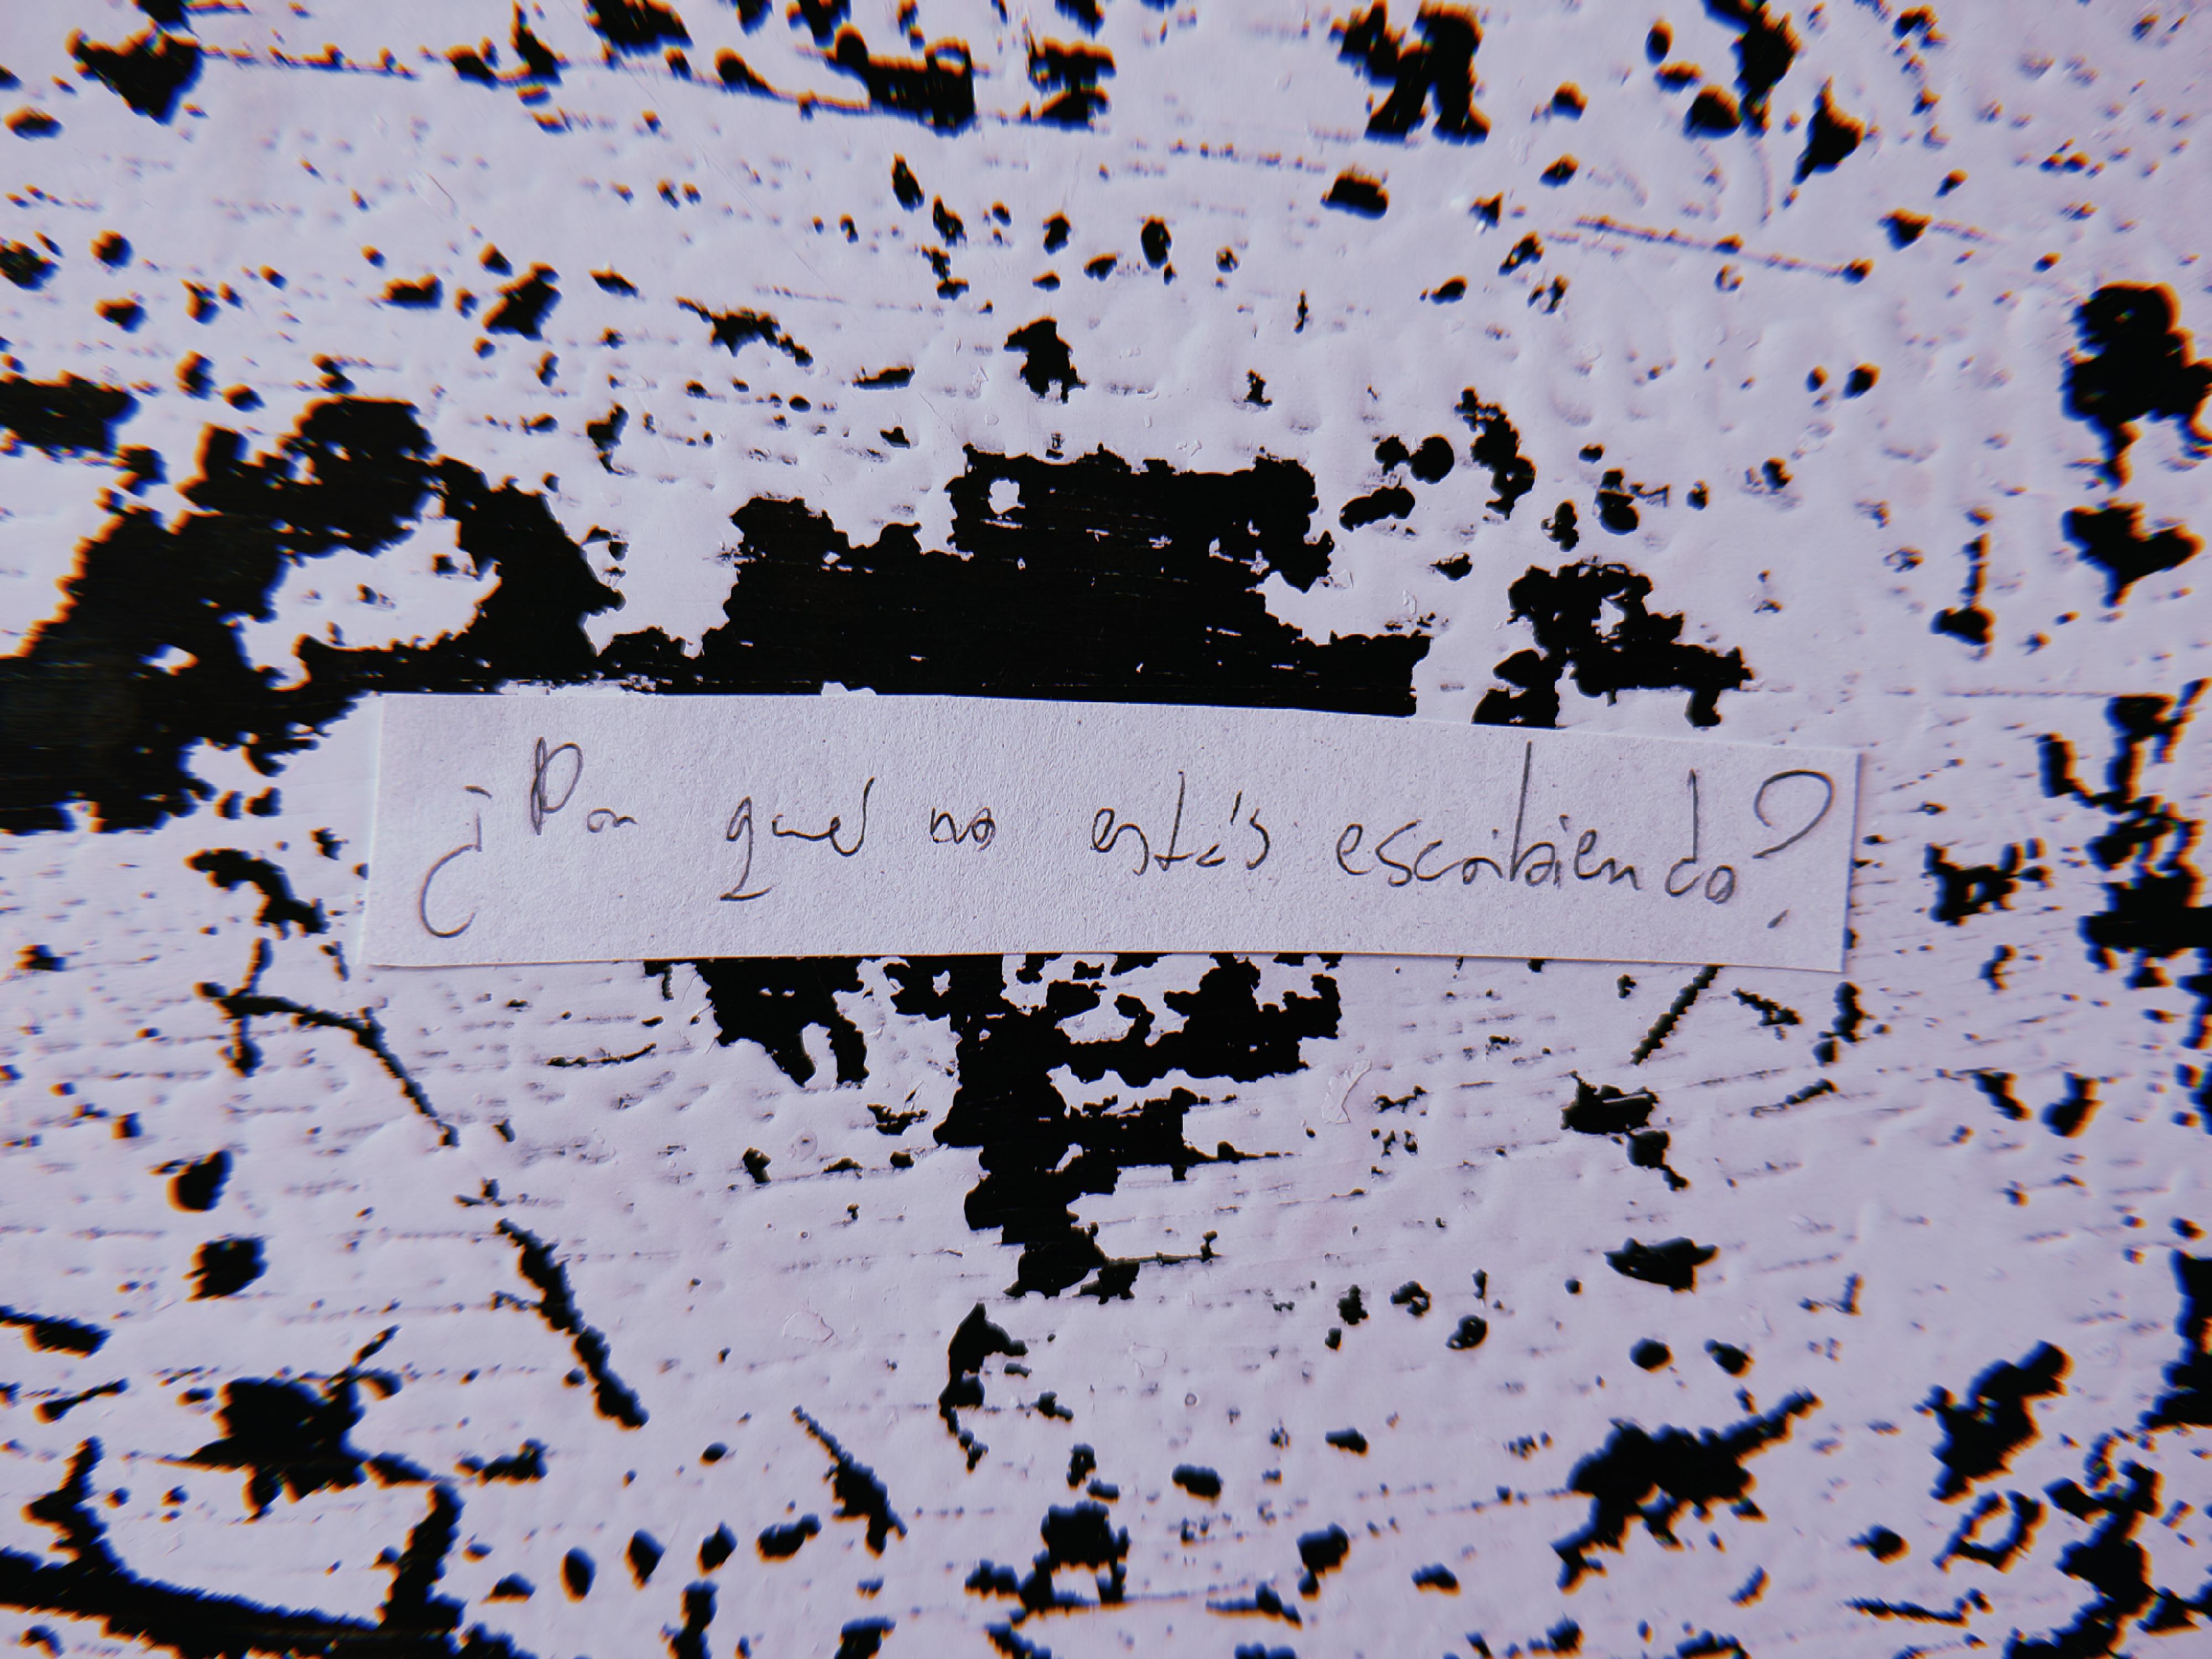 ¿Por qué no estás escribiendo?